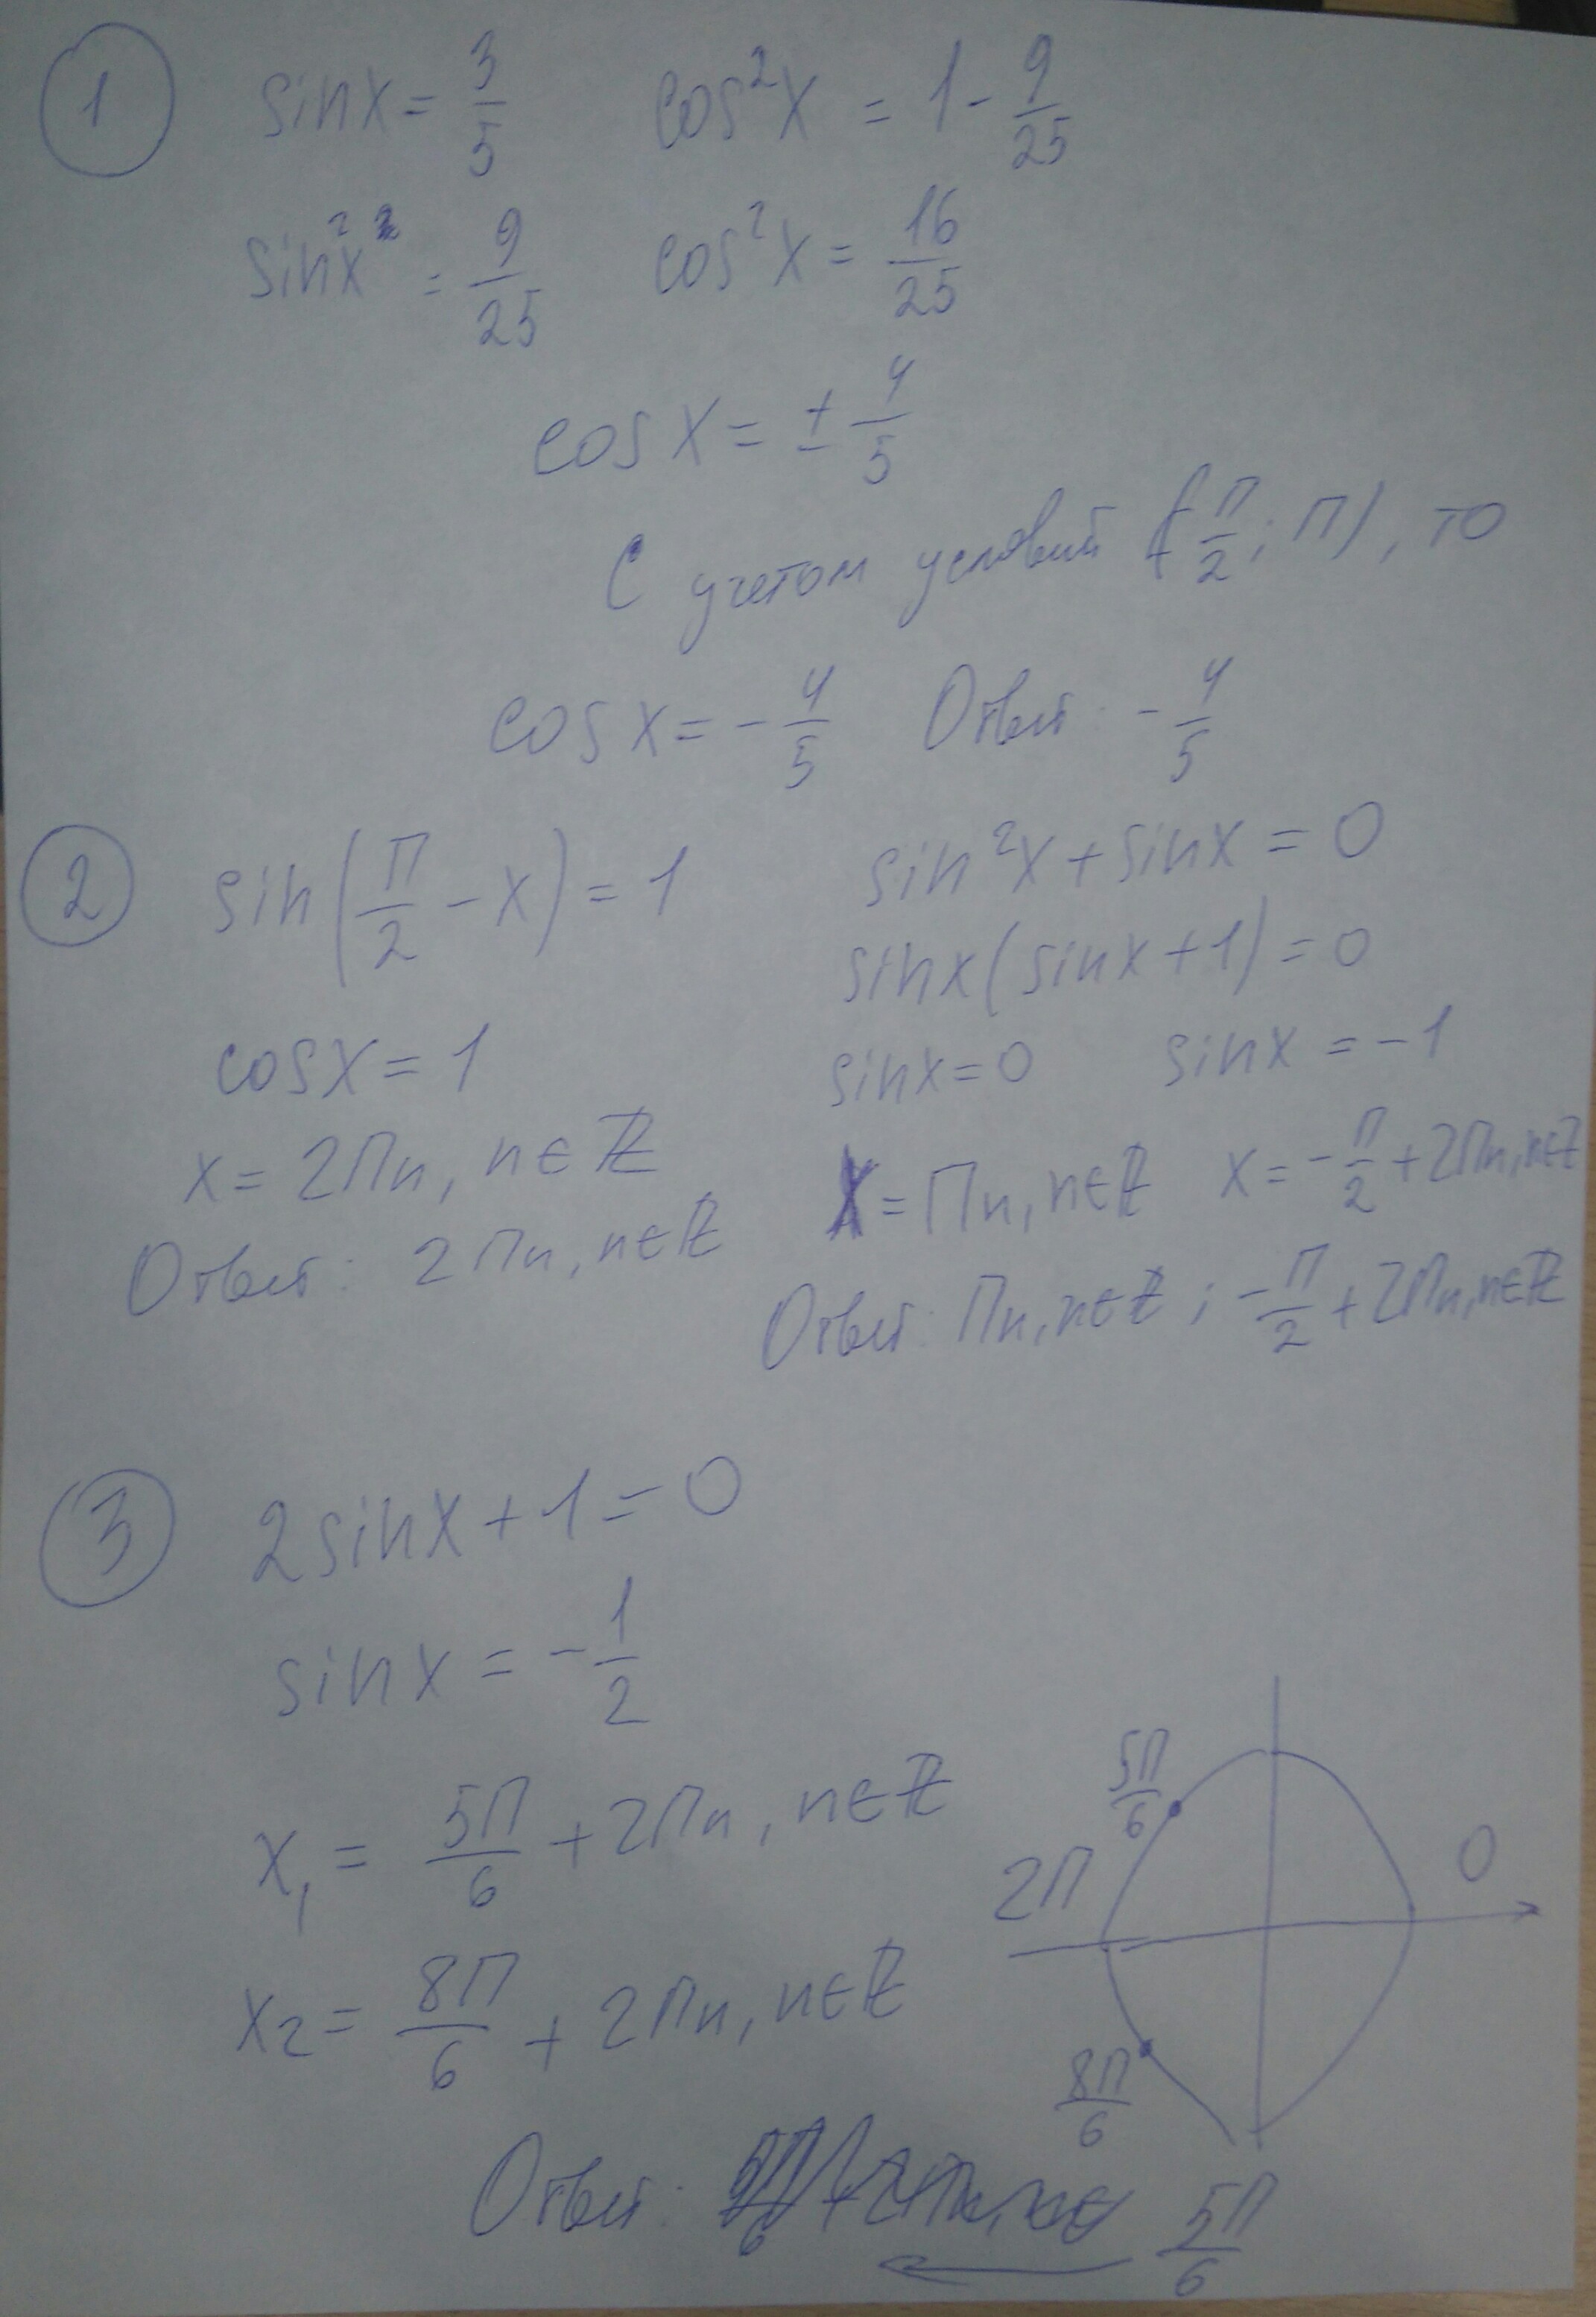 1
sin x = 3/5 cos²x = 1 - 9/25
sin²x = 9/25 cos²x = 16/25
cos x = ± 4/5
С учетом условий (π/2; π), то
cos x = - 4/5 Ответ: - 4/5
2
sin(π/2 - x) = 1
cos x = 1
x = 2πn, n∈Z
Ответ: 2πn, n∈Z
sin²x + sin x = 0
sin x (sin x + 1) = 0
sin x = 0 sin x = -1
x = πn, n∈Z x = -π/2 + 2πn, n∈Z
Ответ: πn, n∈Z; -π/2 + 2πn, n∈Z
3
2 sin x + 1 = 0
sin x = - 1/2
x₁ = 5π/6 + 2πn, n∈Z
x₂ = 8π/6 + 2πn, n∈Z
5π/6
2π 0
8π/6
Ответ: 5π/6